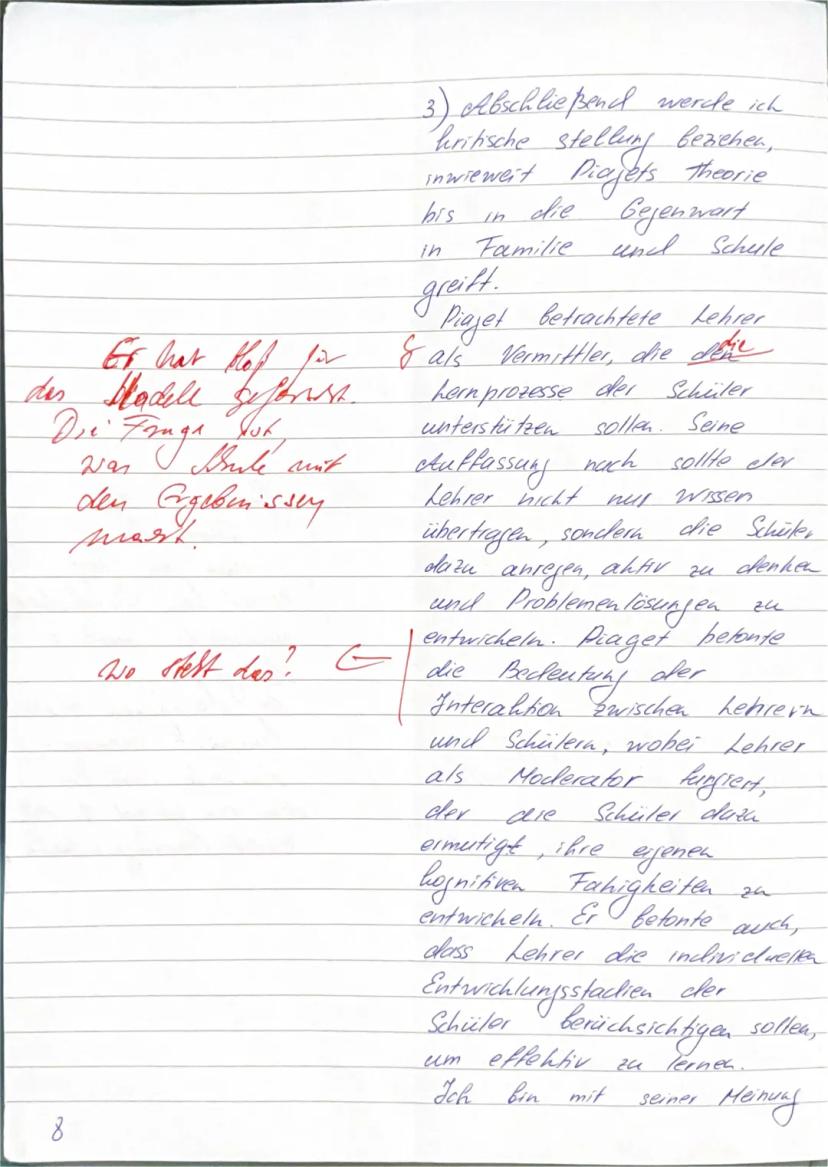 3) Abschließend werde ich
kritische stellung beziehen,
inwieweit Piajets Theorie
bis in die Gegenwart
in Familie und Schule
greift.
Piajet betrachtete Lehrer
als Vermittler, die den
die
Lernprozesse der Schüler
unterstützen sollen. Seine
Auffassung nach sollte der
Lehrer nicht nur Wissen
übertragen, sondern die Schüler
dazu anregen, aktiv zu denken
und Problemenlösungen zu
entwickeln. Piaget betonte
die Bedeutung der
Interaktion zwischen Lehrern
und Schülern, wobei Lehrer
als Moderator fungiert,
der die Schüler dazu
ermutigt, ihre eigenen
kognitiven Fähigkeiten zu
entwickeln. Er betonte auch,
dass Lehrer die individuellen
Entwicklungsstadien der
Schüler berücksichtigen sollen,
um effektiv zu lernen.
Ich bin mit seiner Meinung
Er hat für
das Modell geforscht.
Die Frage ist,
was Schule mit
den Ergebnissen
macht.
wo steht das?
8